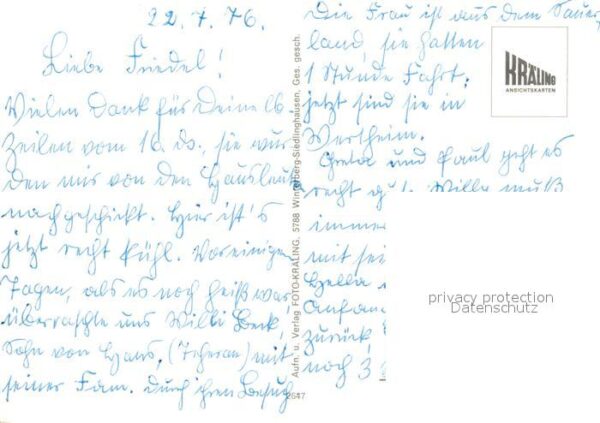 22.7.76.
Liebe Friedel!
Vielen Dank für Deine lb.
Zeilen vom 16. ds., sie wur-
den mir von den Hausleuten
nachgeschickt. Hier ist's
jetzt recht kühl. Vor einigen
Tagen, als es noch heiß war,
überraschte uns Willi Beck
Sohn von Hans, (Teheran) mit
seiner Fam. durch ihren Besuch
Die Frau ist aus dem Sauer,
land, sie hatten
1 Stunde Fahrt,
jetzt sind sie in
Wertheim.
Greta und Paul geht es
recht gut. Willi muß
immer
mit sei
Hella
Anfan
zurück
noch 3
Aufn. u. Verlag FOTO-KRÄLING, 5788 Winterberg-Siedlinghausen, Ges. gesch.
2647
KRÄLING
ANSICHTSKARTEN
privacy protection
Datenschutz